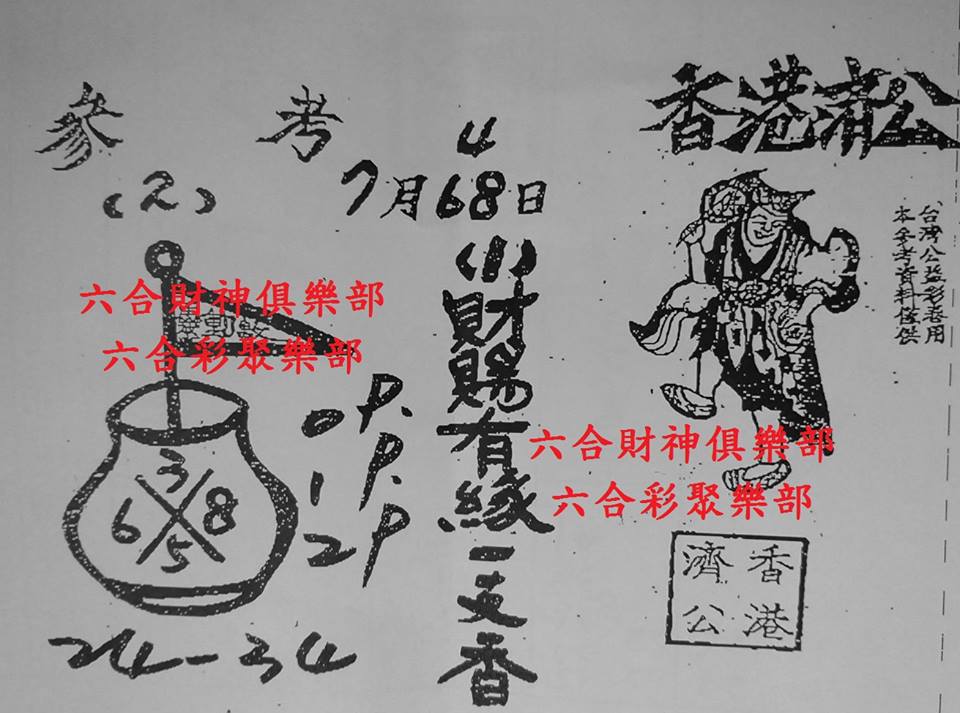 香港濟公
台灣公益彩卷用
本參考資料僅供
參考
(2)
4
7月68日
(1)
財賜有緣一支香
六合財神俱樂部
六合彩聚樂部
3
6 8
5
0P.
1P.
2P
24-34
六合財神俱樂部
六合彩聚樂部
香港
濟公